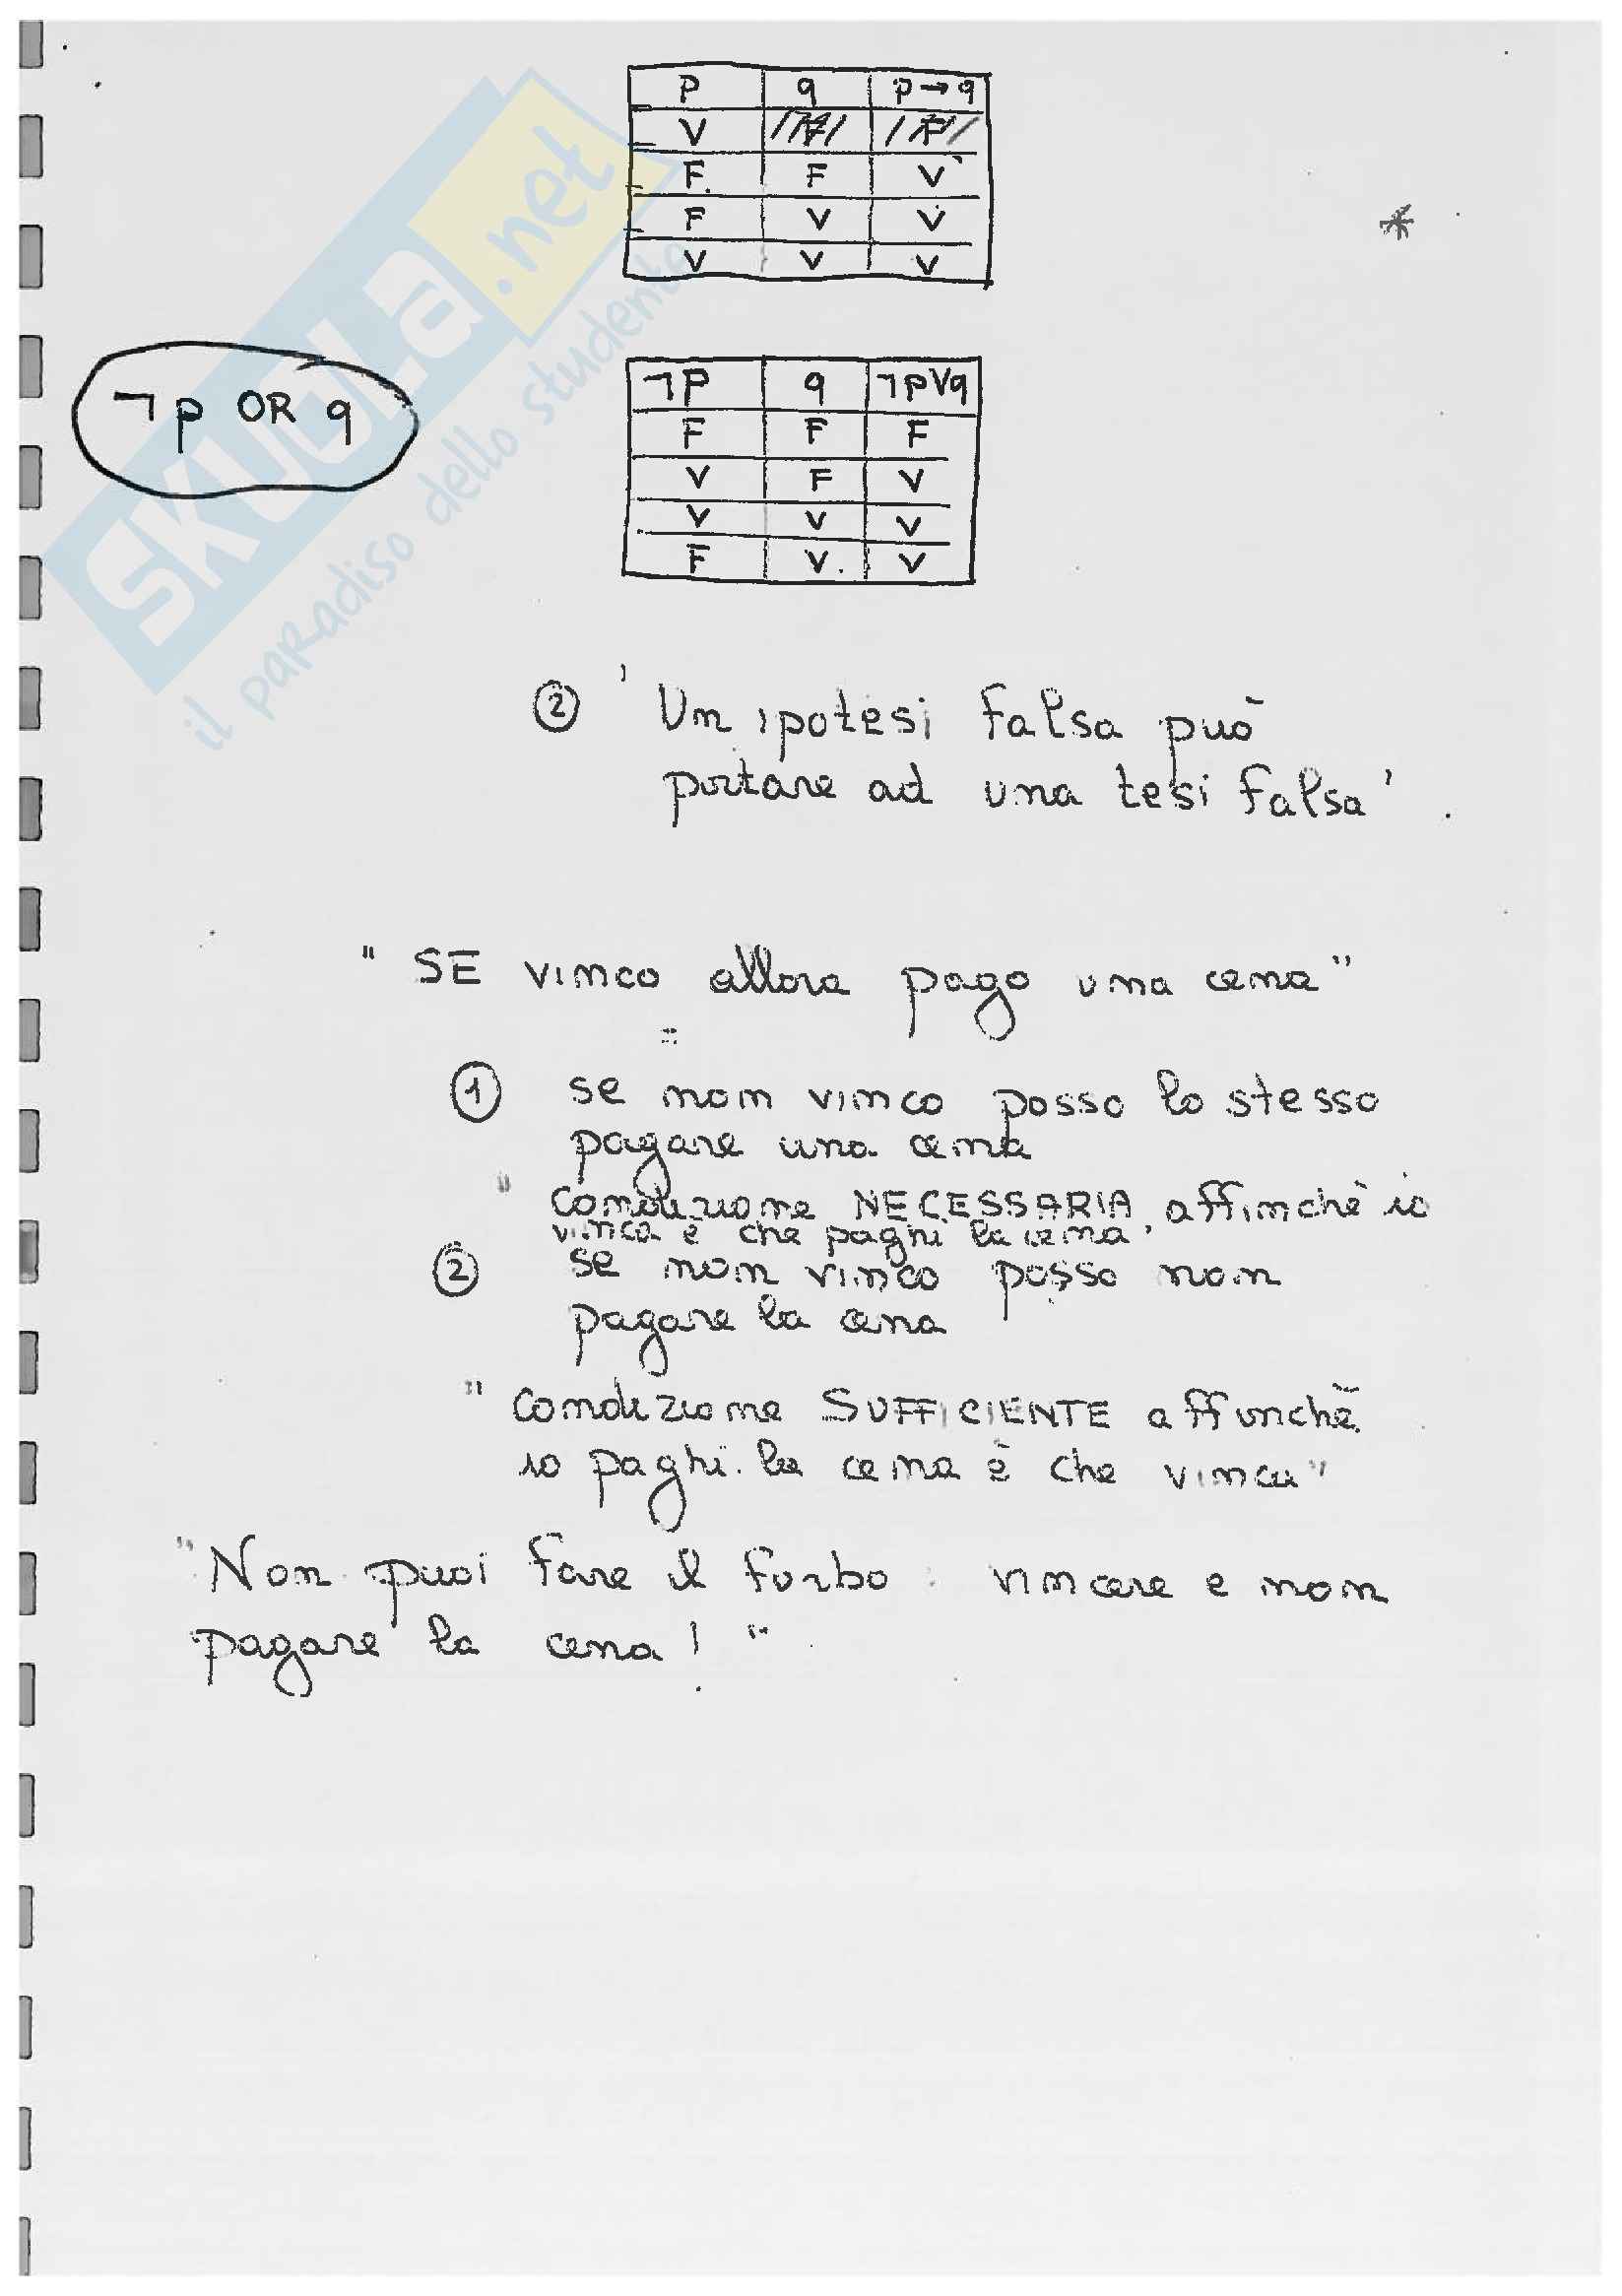 p q p → q
V F F
F F V
F V V
V V V
¬p OR q
¬p q ¬p V q
F F F
V F V
V V V
F V V
② 'Un ipotesi falsa può
portare ad una tesi falsa'.
"SE vinco allora pago una cena"
① se non vinco posso lo stesso
pagare una cena
"Condizione NECESSARIA affinchè io
vinca è che paghi la cena"
② se non vinco posso non
pagare la cena
"Condizione SUFFICIENTE affinchè
io paghi la cena è che vinca"
"Non puoi fare il furbo: vincere e non
pagare la cena!"
SKUOLA.net
il paradiso dello studente